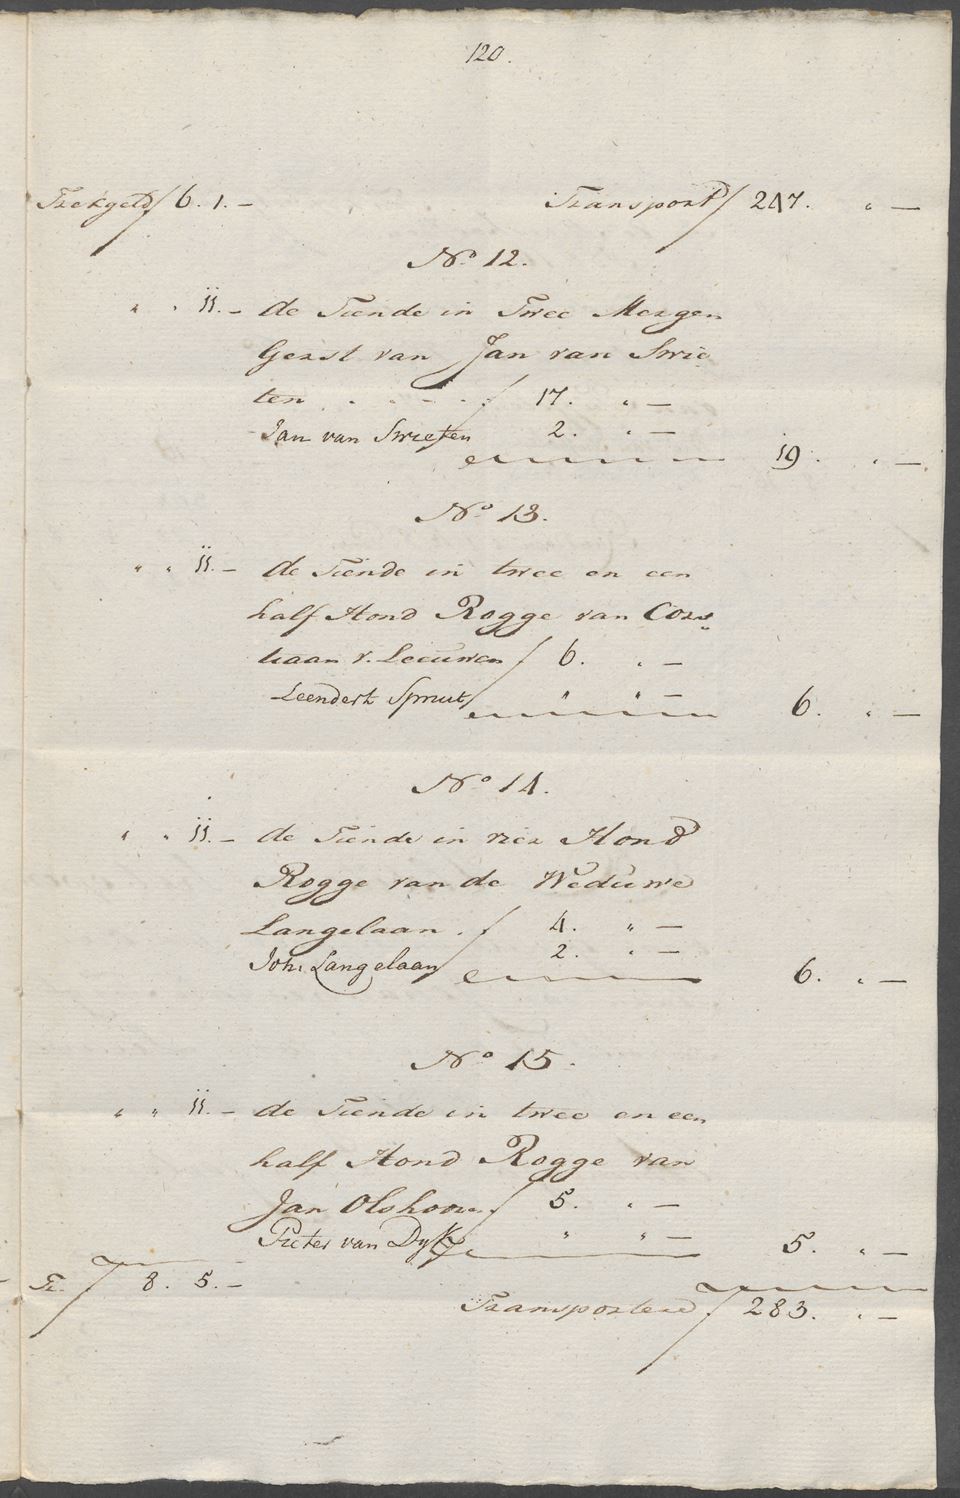 120.
Trekgeld ƒ 6. 1. – Transport ƒ 247. „ –
No 12.
„ „ 11. – de Tiende in Twee Morgen
Gerst van Jan van Swie
ten . . . . ƒ 17. „ –
Jan van Swieten 2. „ –
19. „ –
No 13.
„ „ 11. – de Tiende in twee en een
half Hond Rogge van Cors„
tiaan v. Leeuwen ƒ 6. „ –
Leendert Spruit „ „ – 6. „ –
No 14.
„ „ 11. – de Tiende in vier Hond
Rogge van de Weduwe
Langelaan . ƒ 4. „ –
Joh: Langelaan 2. „ –
6. „ –
No 15.
„ „ 11. – de Tiende in twee en een
half Hond Rogge van
Jan Olshoorn ƒ 5. „ –
Pieter van Dyk „ „ – 5. „ –
Tr. ƒ 8. 5. –
Transportere ƒ 283. „ –